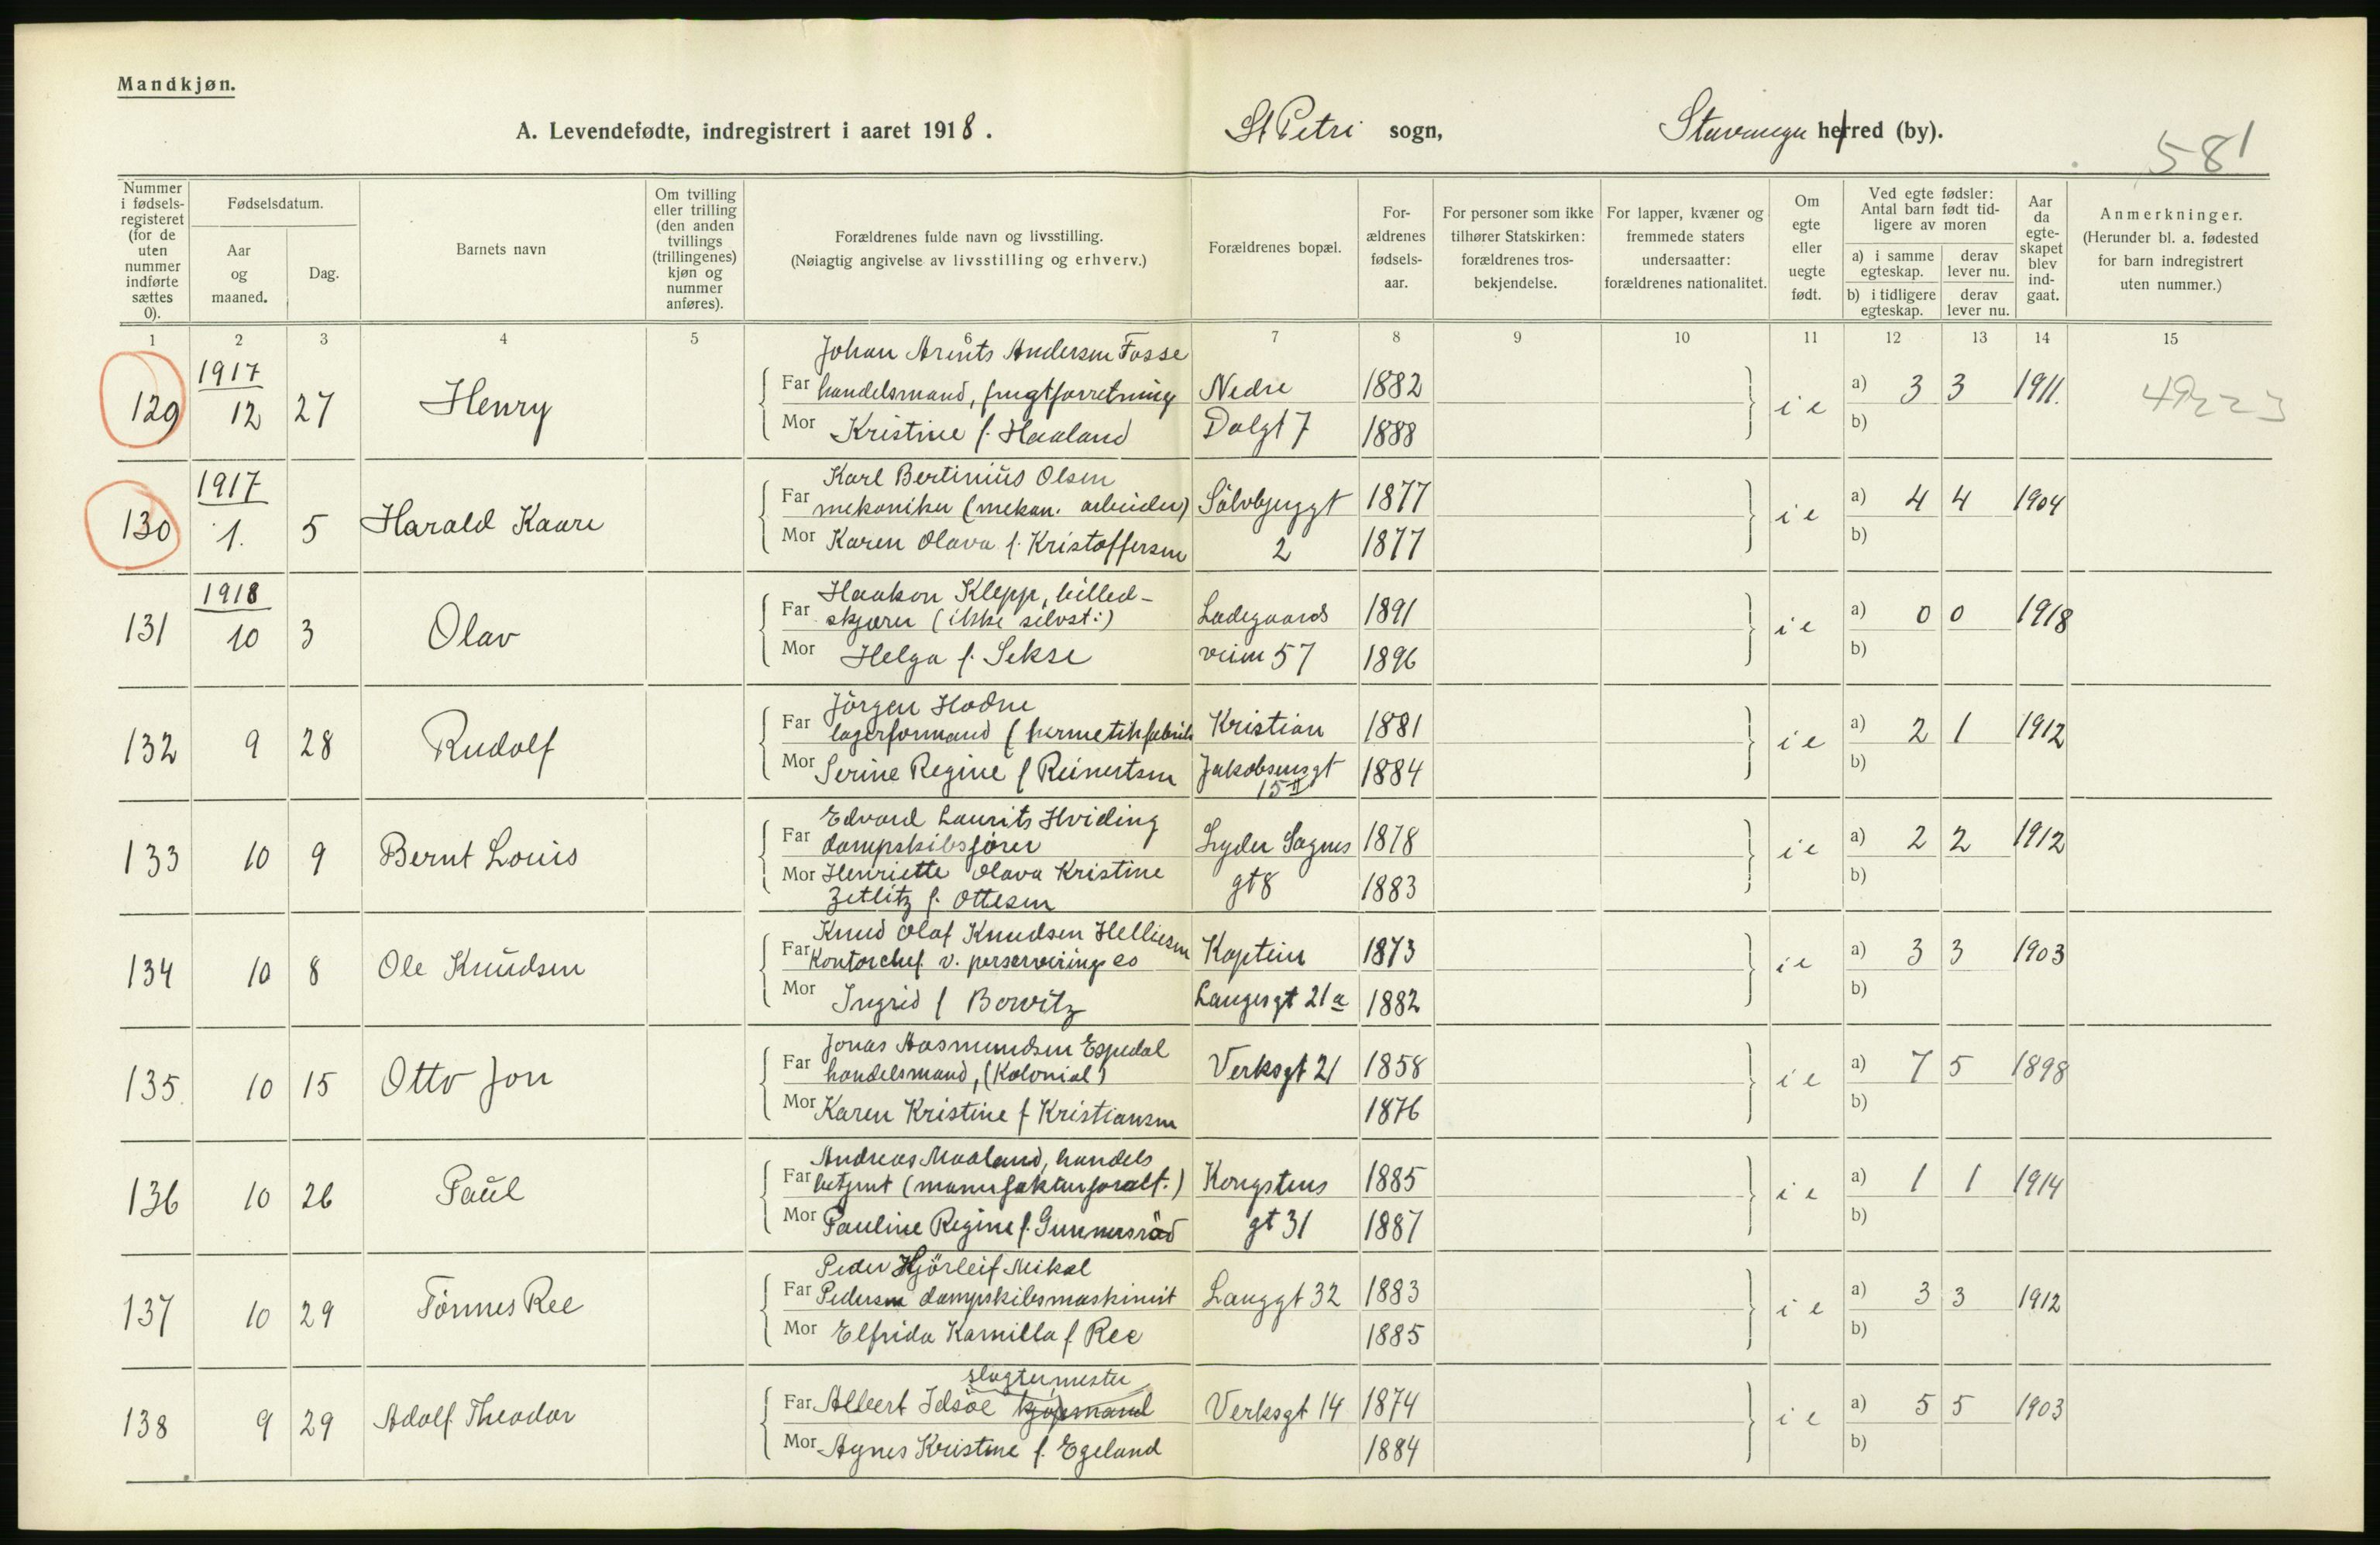 Mandkjøn.
A. Levendefødte, indregistrert i aaret 1918. St Petri sogn, Stavanger herred (by).
581
Nummer i fødselsregisteret (for de uten nummer indførte sættes 0).
Fødselsdatum.
Aar og maaned.
Dag.
Barnets navn
Om tvilling eller trilling (den anden tvillings (trillingenes) kjøn og nummer anføres).
Forældrenes fulde navn og livsstilling.
(Nøiagtig angivelse av livsstilling og erhverv.)
Forældrenes bopæl.
Forældrenes fødselsaar.
For personer som ikke tilhører Statskirken: forældrenes trosbekjendelse.
For lapper, kvæner og fremmede staters undersaatter: forældrenes nationalitet.
Om egte eller uegte født.
Ved egte fødsler: Antal barn født tidligere av moren
a) i samme egteskap. derav lever nu.
b) i tidligere egteskap. derav lever nu.
Aar da egteskapet blev indgaat.
Anmerkninger.
(Herunder bl. a. fødested for barn indregistrert uten nummer.)
1 2 3 4 5 6 7 8 9 10 11 12 13 14 15
1917 Johan Arents Andersen Fosse
129 12 27 Henry Far handelsmand, frugtforretning Nedre 1882 i e a) 3 3 1911.
Mor Kristine f. Haaland Dalgt 7 1888 b)
1917 Karl Bertinius Olsen
130 1. 5 Harald Kaare Far mekaniker (mekan. arbeider) Sölvberggt 1877 i e a) 4 4 1904
Mor Karen Olava f. Kristoffersen 2 1877 b)
1918 Haakon Klepp, billed-
131 10 3 Olav Far skjærer (ikke selvst:) Ladegaards 1891 i e a) 0 0 1918
Mor Helga f. Sekse veien 57 1896 b)
Jörgen Hodne
132 9 28 Rudolf Far lagerformand (hermetikfabrik Kristian 1881 i e a) 2 1 1912
Mor Serine Regine f Reinertsen Jakobsensgt 1884 b)
15 II
Edvard Laurits Hviding
133 10 9 Bernt Louis Far dampskibsfører Lyder Sagens 1878 i e a) 2 2 1912
Mor Henriette Olava Kristine gt 8 1883 b)
Zetlitz f. Ottesen
Knud Olaf Knudsen Helliesen
134 10 8 Ole Knudsen Far Kontorchef v. perserverings co Kaptein 1873 i e a) 3 3 1903
Mor Ingrid f Bowitz Langesgt 21a 1882 b)
Jonas Aasmundsen Espedal
135 10 15 Otto Jon Far handelsmand, (Kolonial) Verksgt 21 1858 i e a) 7 5 1898
Mor Karen Kristine f Kristiansen 1876 b)
Andreas Maaland, handels
136 10 26 Paul Far betjent (manufakturforalt.) Kongstens 1885 i e a) 1 1 1914
Mor Pauline Regine f. Gunnersröd gt 31 1887 b)
Peder Hjörleif Mikal
137 10 29 Tönnes Ree Far Pedersen dampskibsmaskinist Langgt 32 1883 i e a) 3 3 1912
Mor Elfrida Kamilla f. Ree 1885 b)
slagtermester
138 9 29 Adolf Theodor Far Albert Idsöe kjøpmand Verksgt 14 1874 i e a) 5 5 1903
Mor Agnes Kristine f. Egeland 1884 b)